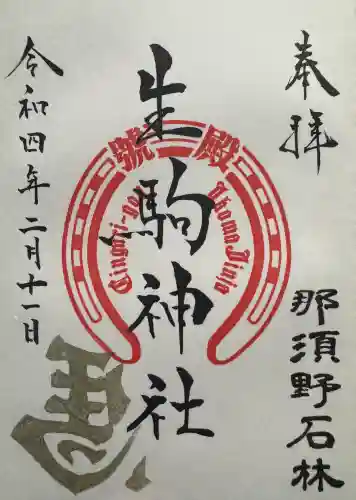 奉拝
那須野石林
生駒神社
令和四年二月十一日
Ikoma Jinja
馬